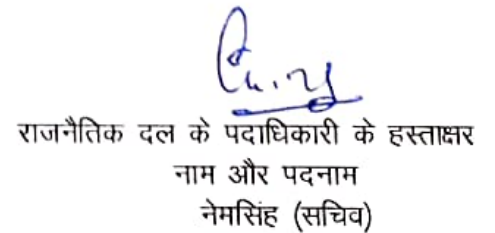 राजनैतिक दल के पदाधिकारी के हस्ताक्षर
नाम और पदनाम
नेमसिंह (सचिव)